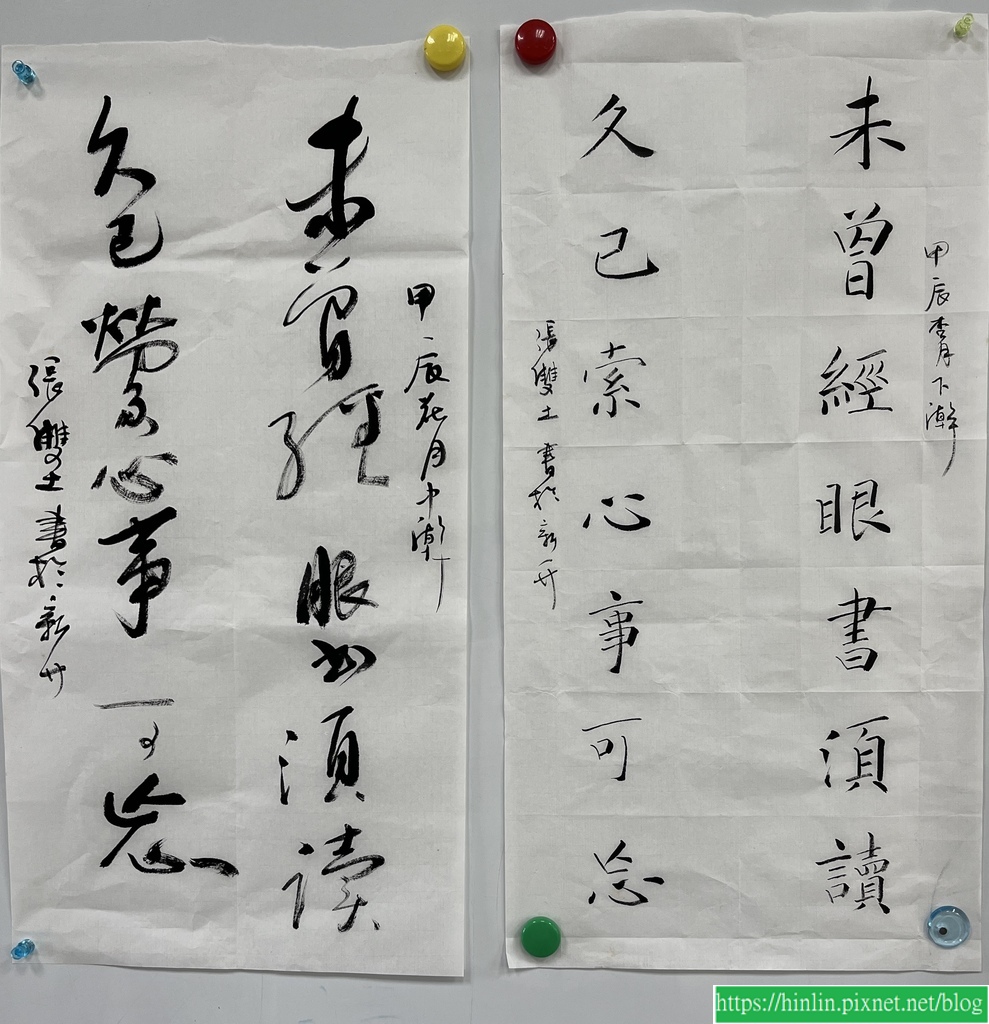 甲辰杏月下澣
未曾經眼書須讀
久已索心事可忘
張雙土 書於新
甲辰花月中澣
未曾經眼書須讀
久已縈心事可忘
張雙土 書於新
https://hinlin.pixnet.net/blog